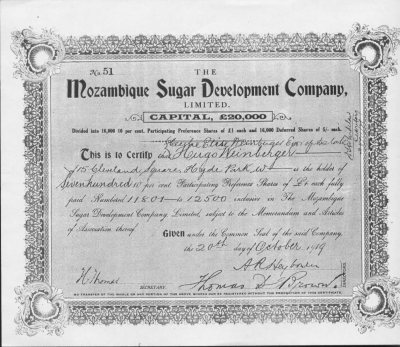 No. 51
THE
Mozambique Sugar Development Company,
LIMITED.
CAPITAL, £20,000
Divided into 16,000 10 per cent. Participating Preference Shares of £1 each and 16,000 Deferred Shares of 5/- each.
This is to Certify Hugo Weinberger
of 15 Cleveland Square, Hyde Park, W is the holder of
Sevenhundred 10 per cent Participating Preference Shares of £1 each fully
paid Numbered 11801 to 12500 inclusive in The Mozambique
Sugar Development Company Limited, subject to the Memorandum and Articles
of Association thereof.
Given under the Common Seal of the said Company,
the 20th day of October 1919
Thomas
SECRETARY.
Thomas Brown
NO TRANSFER OF THE WHOLE OR ANY PORTION OF THE ABOVE SHARES CAN BE REGISTERED WITHOUT THE PRODUCTION OF THIS CERTIFICATE.